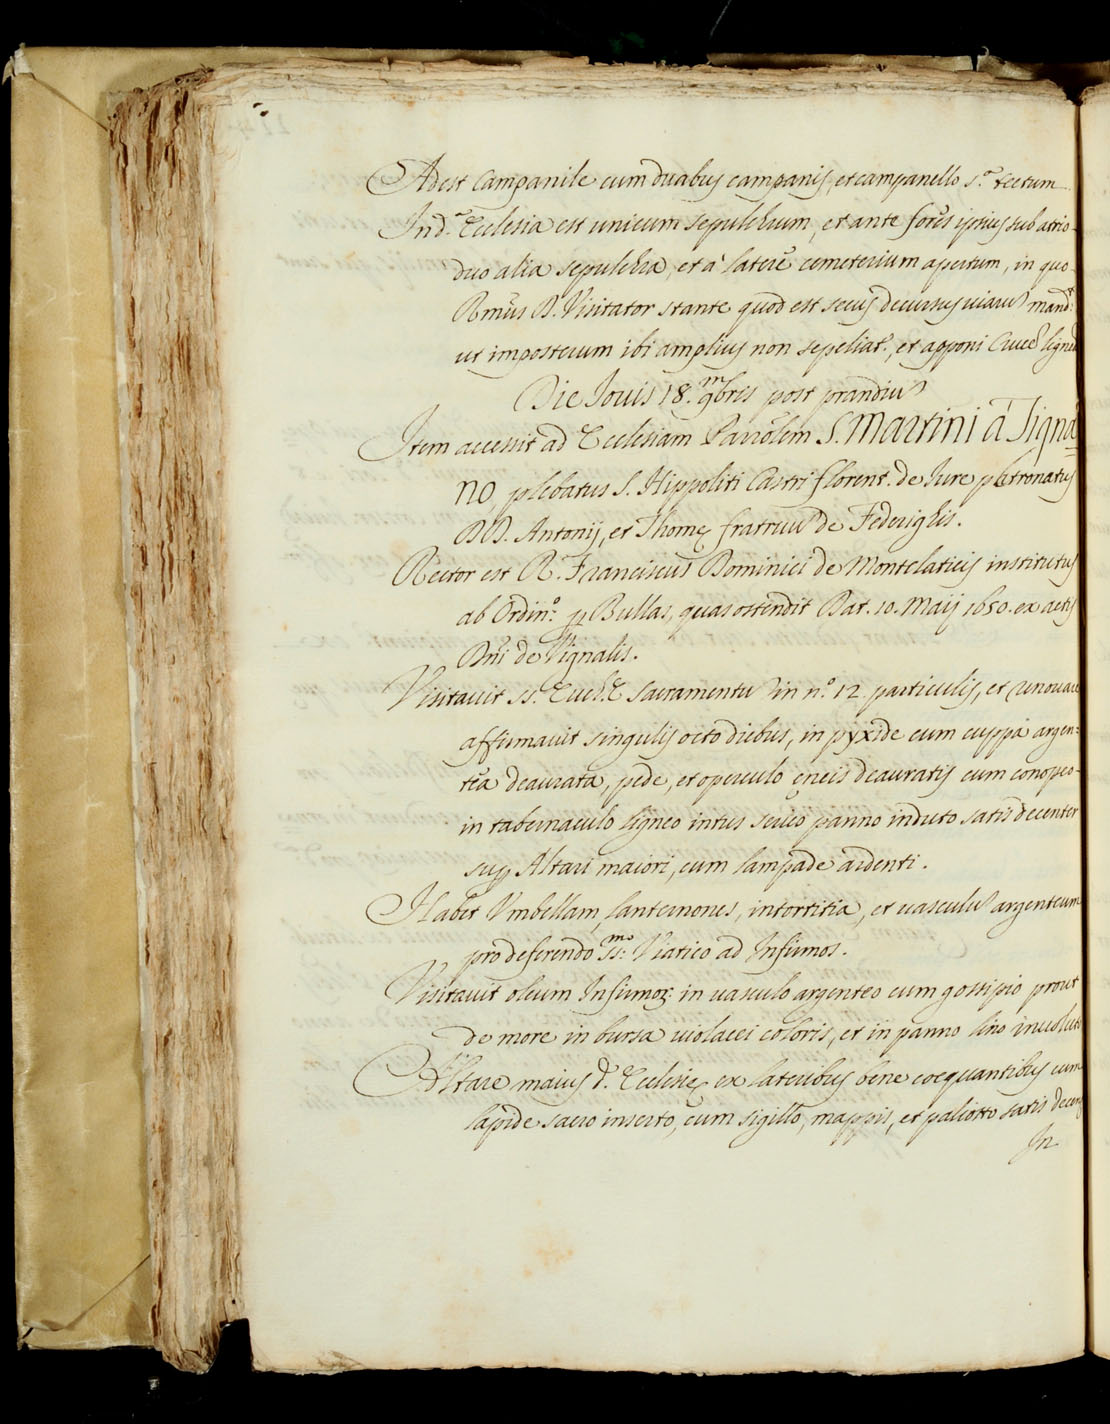 Adest Campanile cum duabus campanis, et campanello s.ª tectum
In d.ª Ecclesia est unicum sepulchrum, et ante fores ipsius sub atrio
duo alia sepulchra, et à latere cemeterium apertum, in quo
R̃mus D. Visitator stante quod est secus decursus viaru͂ mand.t
ut imposterum ibi amplius non sepeliat.r, et apponi Cruce͂ lignea͂
Die Iouis 18. 9mbris post prandiu͂
Item accessit ad Ecclesiam Parro͂lem S. Martini à Signa=
no plebatus S. Hippoliti Castri florent. de Iure patronatus
DD. Antonij, et Thomę fratruu͂ de Federighis.
Rector est R. Franciscus Dominici de Montelaticis institutus
ab Ordin.º p Bullas, quas ostendit Dat. 10. Maij 1650. ex actis
Dn͂i de Vignalis.
Visitauit SS. Euch.æ Sacramentu͂ in n.º 12. particulis, et renouari
affirmauit singulis octo diebus, in pyxide cum cuppa argen=
tea deaurata, pede, et operculo ęneis deauratis cum conopeo
in tabernaculo ligneo intus serico panno induto satis decenter
sup Altari maiori, cum lampade ardenti.
Habet Vmbellam, lanternones, intortitia, et uasculu͂ argenteum
pro deferendo SS:mo Viatico ad Infirmos.
Visitauit oleum Infirmor: in uasculo argenteo cum gossipio prout
de more in bursa uiolacei coloris, et in panno lino inuoluto
Altare maius d. Ecclesię ex lateribus bene coequantibus cum
lapide sacro inserto, cum sigillo, mappis, et paliotto satis decens
In